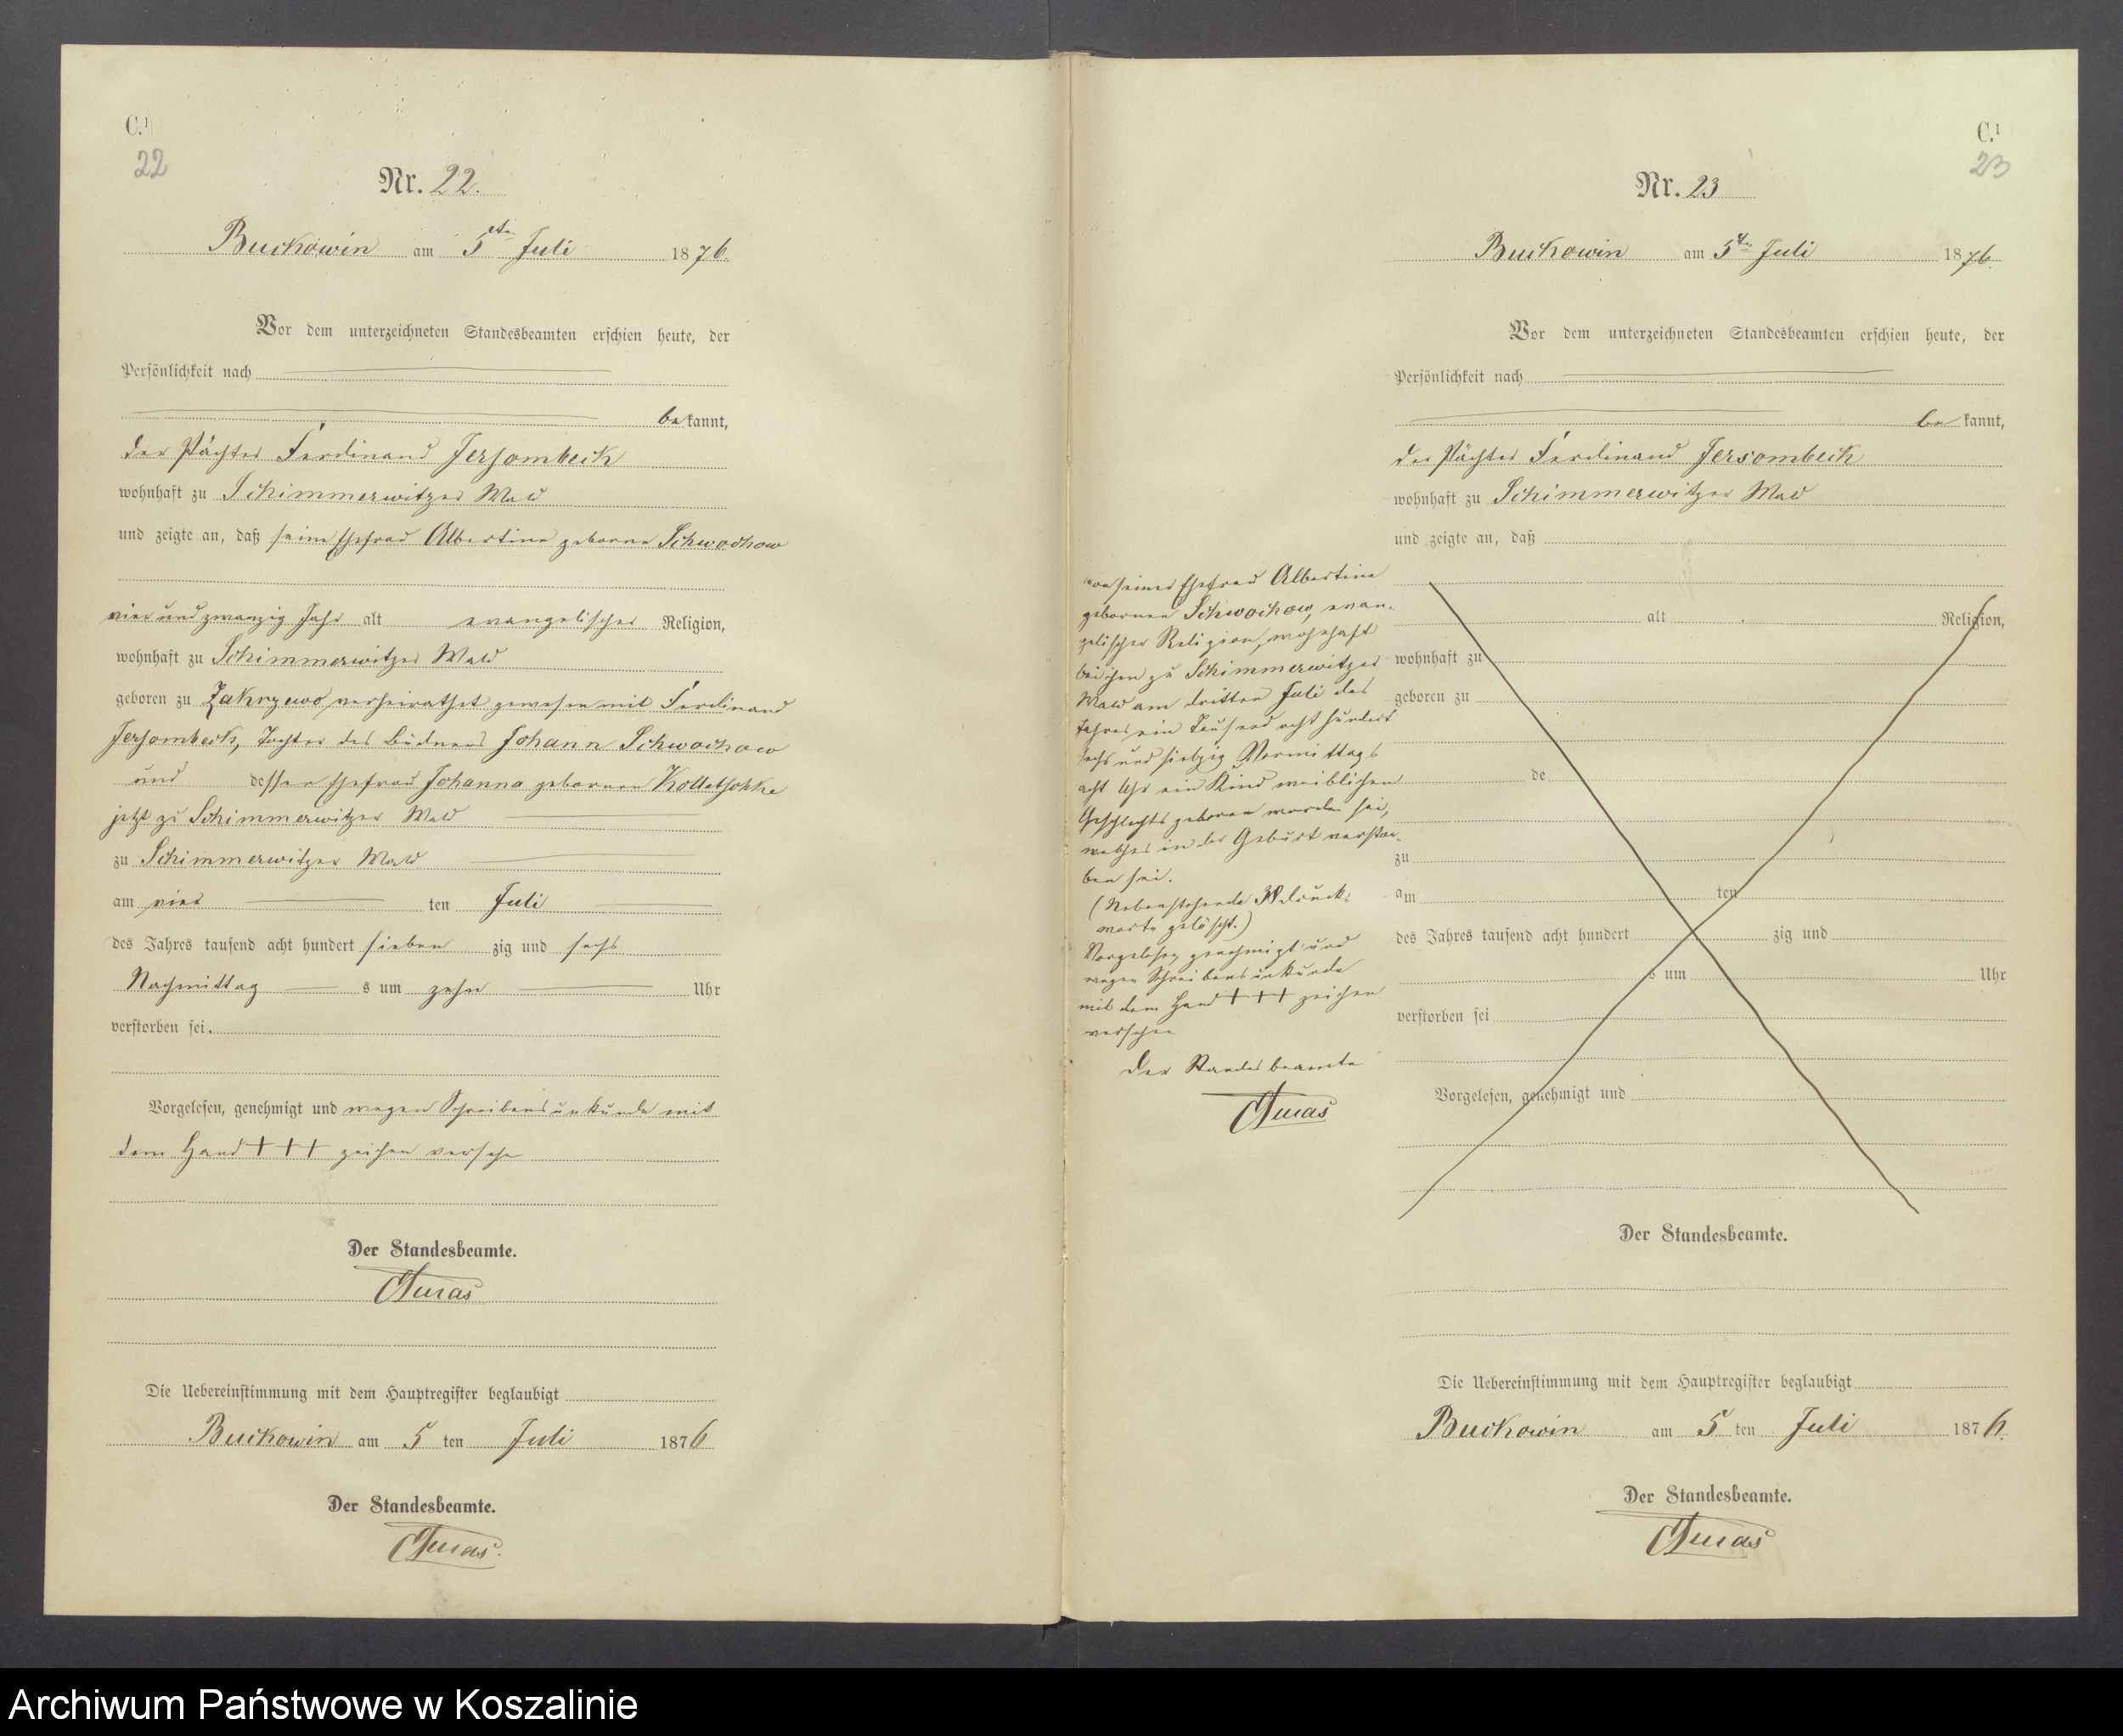 C.1
22
Nr. 22.
Buckowin am 5ten Juli 1876.
Vor dem unterzeichneten Standesbeamten erschien heute, der
Persönlichkeit nach
bekannt,
der Pächter Ferdinand Jersombeck
wohnhaft zu Schimmerwitzer Wald
und zeigte an, daß seine Ehefrau Albertine geborne Schwochow
vier und zwanzig Jahr alt evangelischer Religion,
wohnhaft zu Schimmerwitzer Wald
geboren zu Zakrzewo verheirathet gewesen mit Ferdinand
Jersombeck, Tochter des Büdners Johann Schwochow
und dessen Ehefrau Johanna gebornen Kolletschke
jetzt zu Schimmerwitzer Wald
zu Schimmerwitzer Wald
am vier ten Juli
des Jahres tausend acht hundert sieben zig und sechs
Nachmittag s um zehn Uhr
verstorben sei.
Vorgelesen, genehmigt und wegen Schreibensunkunde mit
dem Hand +++ zeichen versehn
Der Standesbeamte.
Die Uebereinstimmung mit dem Hauptregister beglaubigt
Buckowin am 5 ten Juli 1876
Der Standesbeamte.
C.1
23
Nr. 23
Buckowin am 5ten Juli 1876.
Vor dem unterzeichneten Standesbeamten erschien heute, der
Persönlichkeit nach
bekannt,
der Pächter Ferdinand Jersombeck
wohnhaft zu Schimmerwitzer Wald
und zeigte an, daß
von seiner Ehefrau Albertine
gebornen Schwochow, evan-
gelischer Religion, wohnhaft
bei ihm zu Schimmerwitzer
Wald am dritten Juli des
Jahres ein Tausend acht hundert
sechs und siebzig Vormittags
acht Uhr ein Kind weiblichen
Geschlechts geboren worden sei,
welches in der Geburt verstor-
ben sei.
(Nebenstehende 38 Druck-
worte gelöscht.)
Vorgelesen genehmigt und
wegen Schreibensunkunde
mit dem Hand +++ zeichen
versehen
Der Standesbeamte
alt Religion,
wohnhaft zu
geboren zu
de
zu
am ten
des Jahres tausend acht hundert zig und
s um Uhr
verstorben sei
Vorgelesen, genehmigt und
Der Standesbeamte.
Die Uebereinstimmung mit dem Hauptregister beglaubigt
Buckowin am 5 ten Juli 1876.
Der Standesbeamte.
Archiwum Państwowe w Koszalinie